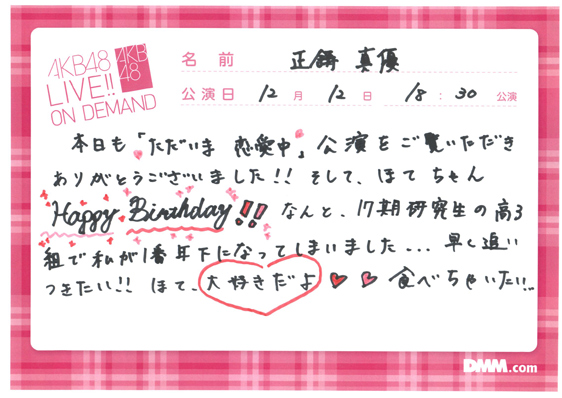 AKB48
LIVE!!
ON DEMAND
AKB
48
名前 正鋳真優
公演日 12月12日 18:30 公演
本日も「ただいま 恋愛中」公演をご覧いただき
ありがとうございました!! そして、ほてちゃん
Happy Birthday!! なんと、17期研究生の高3
組で私が1番年下になってしまいました... 早く追い
つきたい!! ほて、大好きだよ♥♥ 食べちゃいたい!!
DMM.com